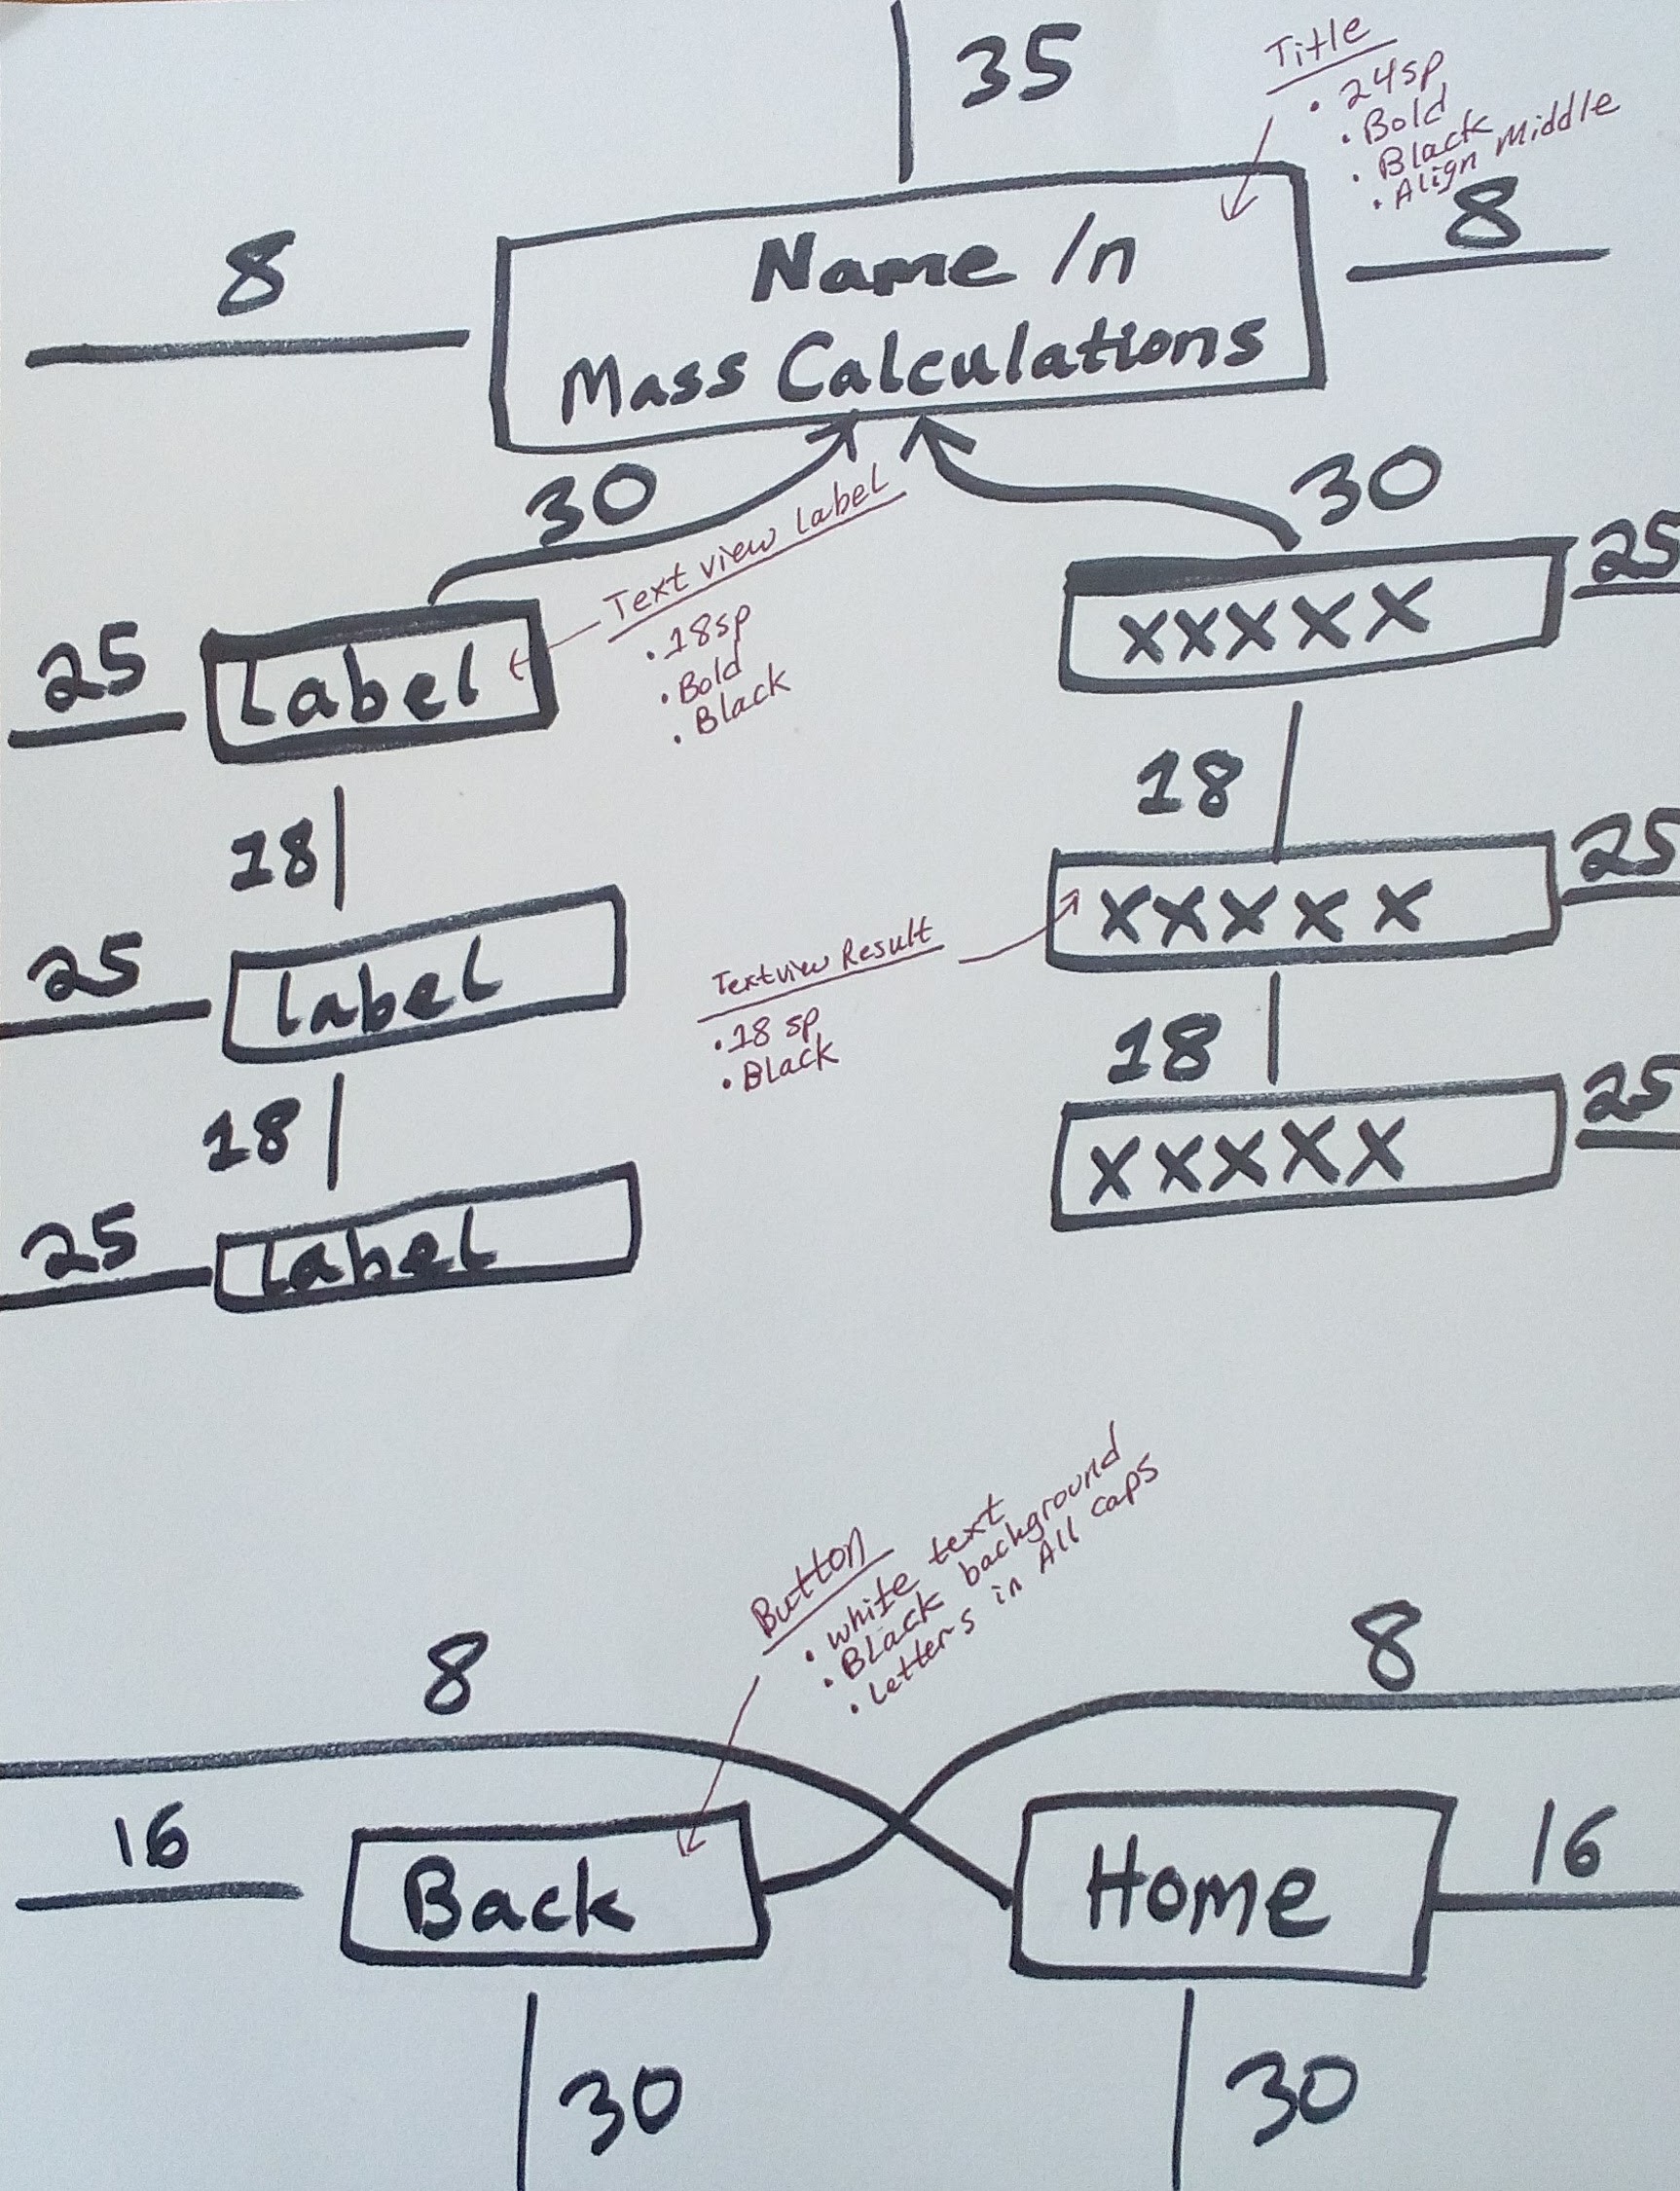 35
Title
• 24sp
• Bold
• Black
• Align Middle
8
8
Name /n
Mass Calculations
30
30
Text view Label
• 18sp
• Bold
• Black
25
Label
XXXXX
25
18
18
25
Label
Textview Result
• 18 sp
• Black
XXXXX
25
18
18
25
Label
XXXXX
25
Button
• white text
• Black background
• Letters in All caps
8
8
16
Back
Home
16
30
30